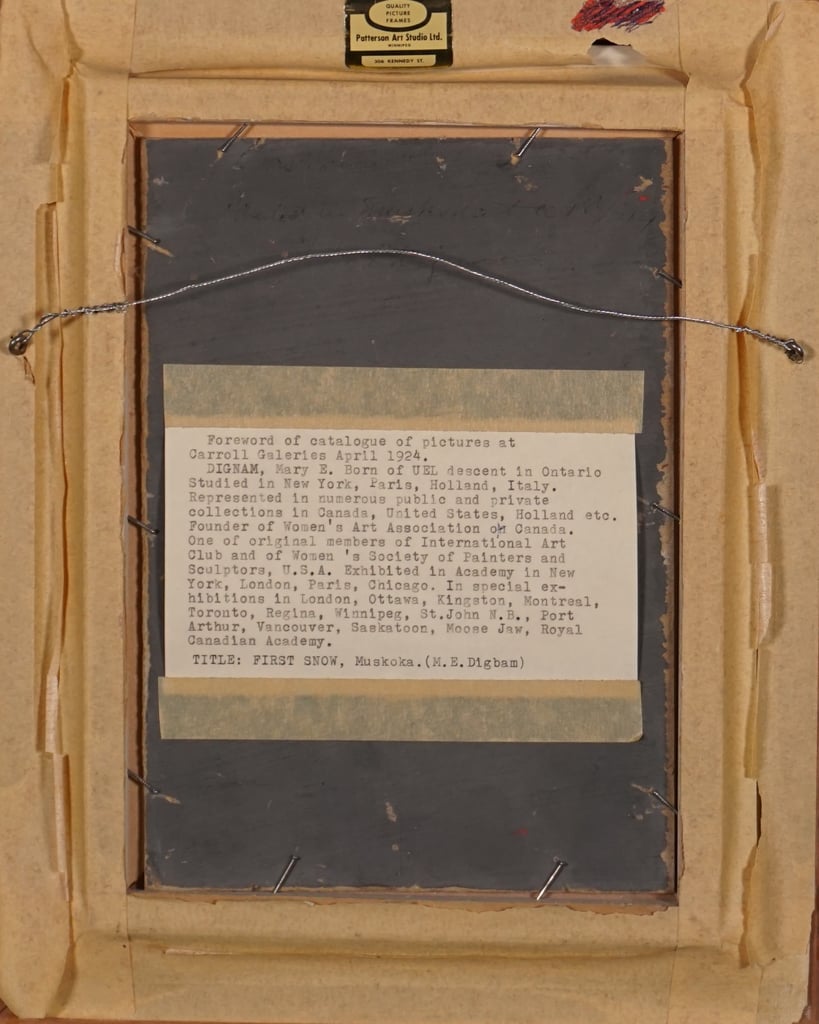 QUALITY
PICTURE
FRAMES
Patterson Art Studio Ltd.
WINNIPEG
306 KENNEDY ST.
Foreword of catalogue of pictures at
Carroll Galeries April 1924.
DIGNAM, Mary E. Born of UEL descent in Ontario
Studied in New York, Paris, Holland, Italy.
Represented in numerous public and private
collections in Canada, United States, Holland etc.
Founder of Women's Art Association oh Canada.
One of original members of International Art
Club and of Women 's Society of Painters and
Sculptors, U.S.A. Exhibited in Academy in New
York, London, Paris, Chicago. In special ex-
hibitions in London, Ottawa, Kingston, Montreal,
Toronto, Regina, Winnipeg, St.John N.B., Port
Arthur, Vancouver, Saskatoon, Moose Jaw, Royal
Canadian Academy.
TITLE: FIRST SNOW, Muskoka.(M.E.Digbam)